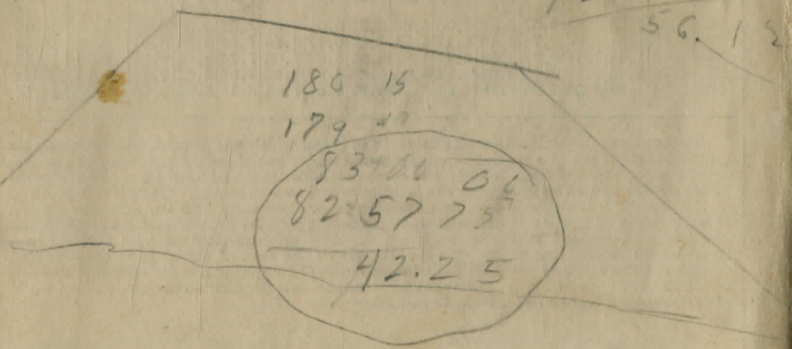 56.12
180 15
179
83 00 00
82 57 75
42.25